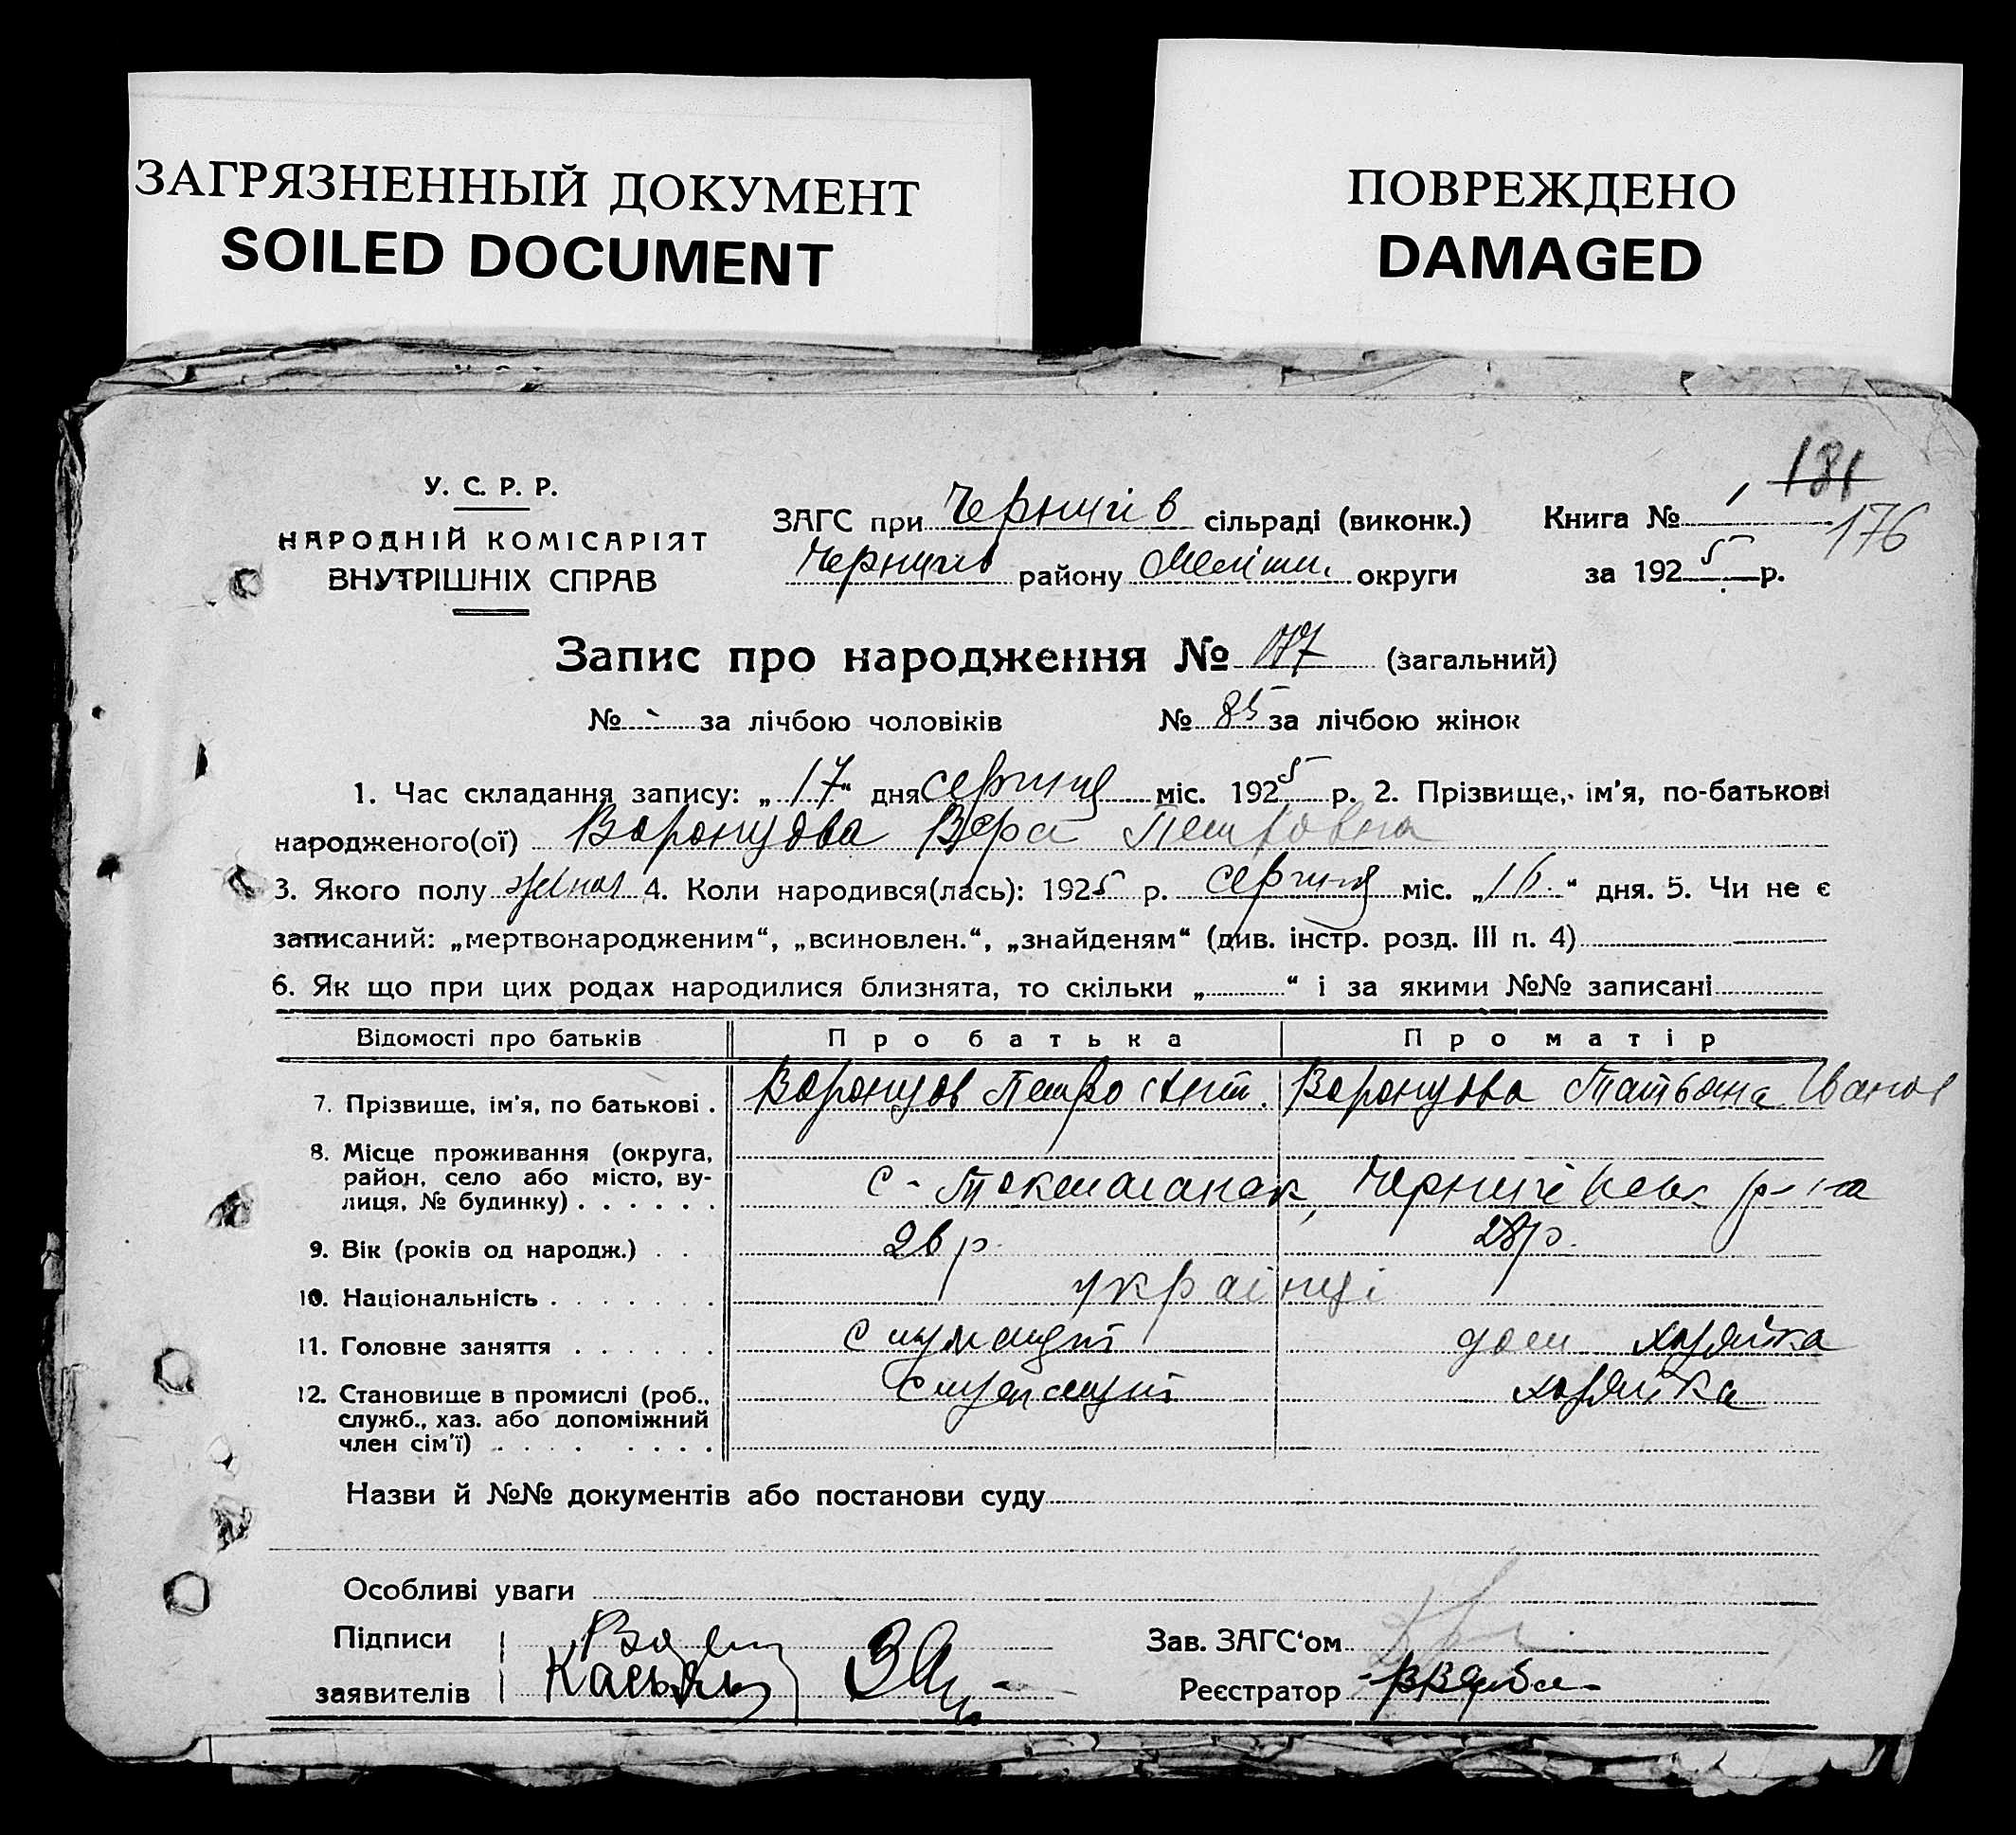 ЗАГРЯЗНЕННЫЙ ДОКУМЕНТ
SOILED DOCUMENT
ПОВРЕЖДЕНО
DAMAGED
181
У. С. Р. Р.
НАРОДНІЙ КОМІСАРІЯТ
ВНУТРІШНІХ СПРАВ
ЗАГС при Чернигів сільраді (виконк.)
Чернигів району Меліт. округи
Книга № 1
176
за 1925 р.
Запис про народження № (загальний)
№ - за лічбою чоловіків № 85 за лічбою жінок
1. Час складання запису: „17“ дня серпня міс. 1925 р. 2. Прізвище, ім'я, по-батькові
народженого(ої) Воронцова Вера Петровна
3. Якого полу жіноч 4. Коли народився(лась): 1925 р. серпня міс. „16.“ дня. 5. Чи не є
записаний: „мертвонародженим“, „всиновлен.“, „знайденям“ (див. інстр. розд. III п. 4)
6. Як що при цих родах народилися близнята, то скільки „ “ і за якими №№ записані
Відомості про батьків Про батька Про матір
7. Прізвище, ім'я, по батькові . Воронцов Петро Ант. Воронцова Татьяна Іванов
8. Місце проживання (округа,
район, село або місто, ву-
лиця, № будинку) . . . . . . с - Чернигівськ р-на
9. Вік (років од народж.) . . 26 р. 28 р.
10. Національність . . . . . . . українці
11. Головне заняття . . . . . . дом хазяйка
12. Становище в промислі (роб.,
служб., хаз. або допоміжний
член сім'ї) . . . . . . . . хазяйка
Назви й №№ документів або постанови суду
Особливі уваги
Підписи
заявителів
Зав. ЗАГС'ом
Реєстратор